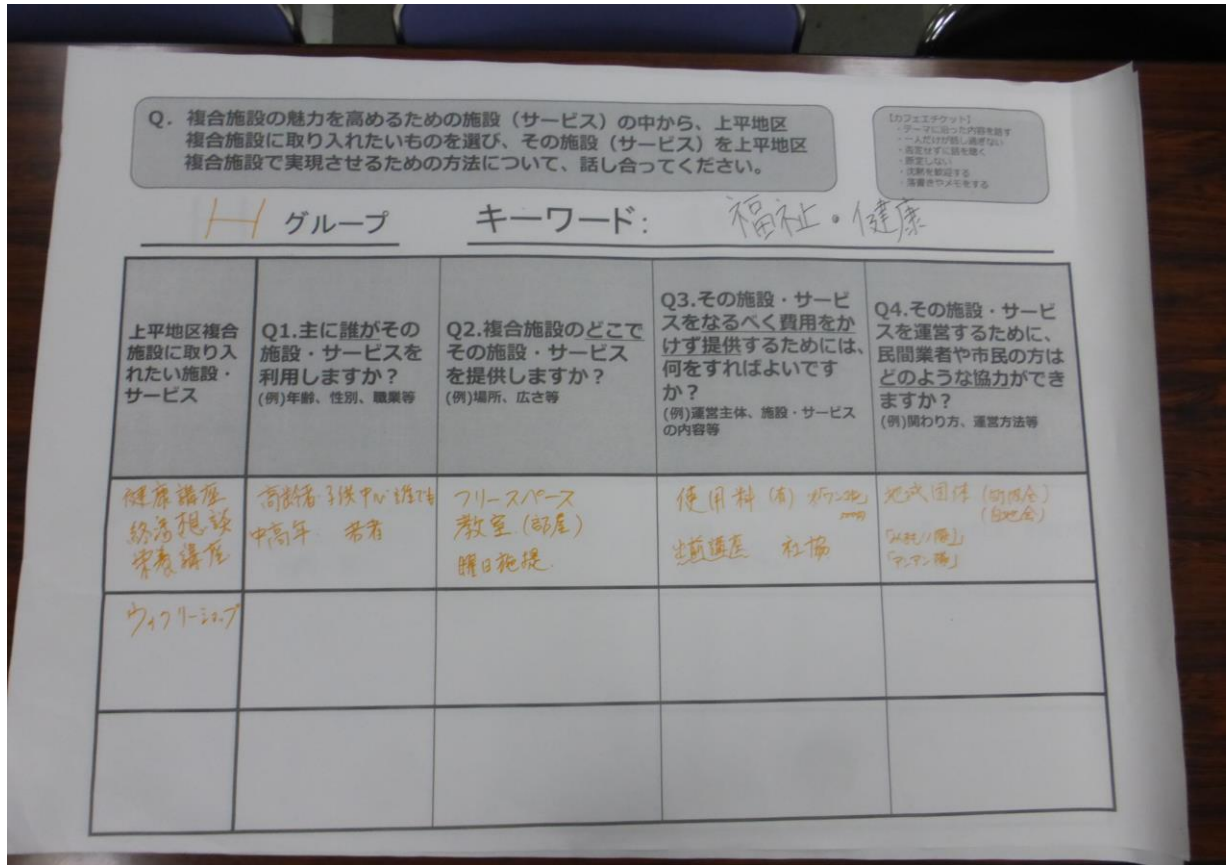 Q. 複合施設の魅力を高めるための施設（サービス）の中から、上平地区
複合施設に取り入れたいものを選び、その施設（サービス）を上平地区
複合施設で実現させるための方法について、話し合ってください。
【カフェエチケット】
・テーマに沿った内容を話す
・一人だけが話し過ぎない
・否定せずに話を聴く
・断定しない
・沈黙を歓迎する
・落書きやメモをする
H グループ
キーワード： 福祉・健康
上平地区複合
施設に取り入
れたい施設・
サービス
Q1.主に誰がその
施設・サービスを
利用しますか？
(例)年齢、性別、職業等
Q2.複合施設のどこで
その施設・サービス
を提供しますか？
(例)場所、広さ等
Q3.その施設・サービ
スをなるべく費用をか
けず提供するためには、
何をすればよいです
か？
(例)運営主体、施設・サービス
の内容等
Q4.その施設・サービ
スを運営するために、
民間業者や市民の方は
どのような協力ができ
ますか？
(例)関わり方、運営方法等
健康講座
終活相談
栄養講座
高齢者 子供中心 誰でも
中高年 若者
フリースペース
教室（部屋）
曜日
使用料（有）
出前講座 社協
地域団体（町内会）
（自治会）
ウィクリーショップ